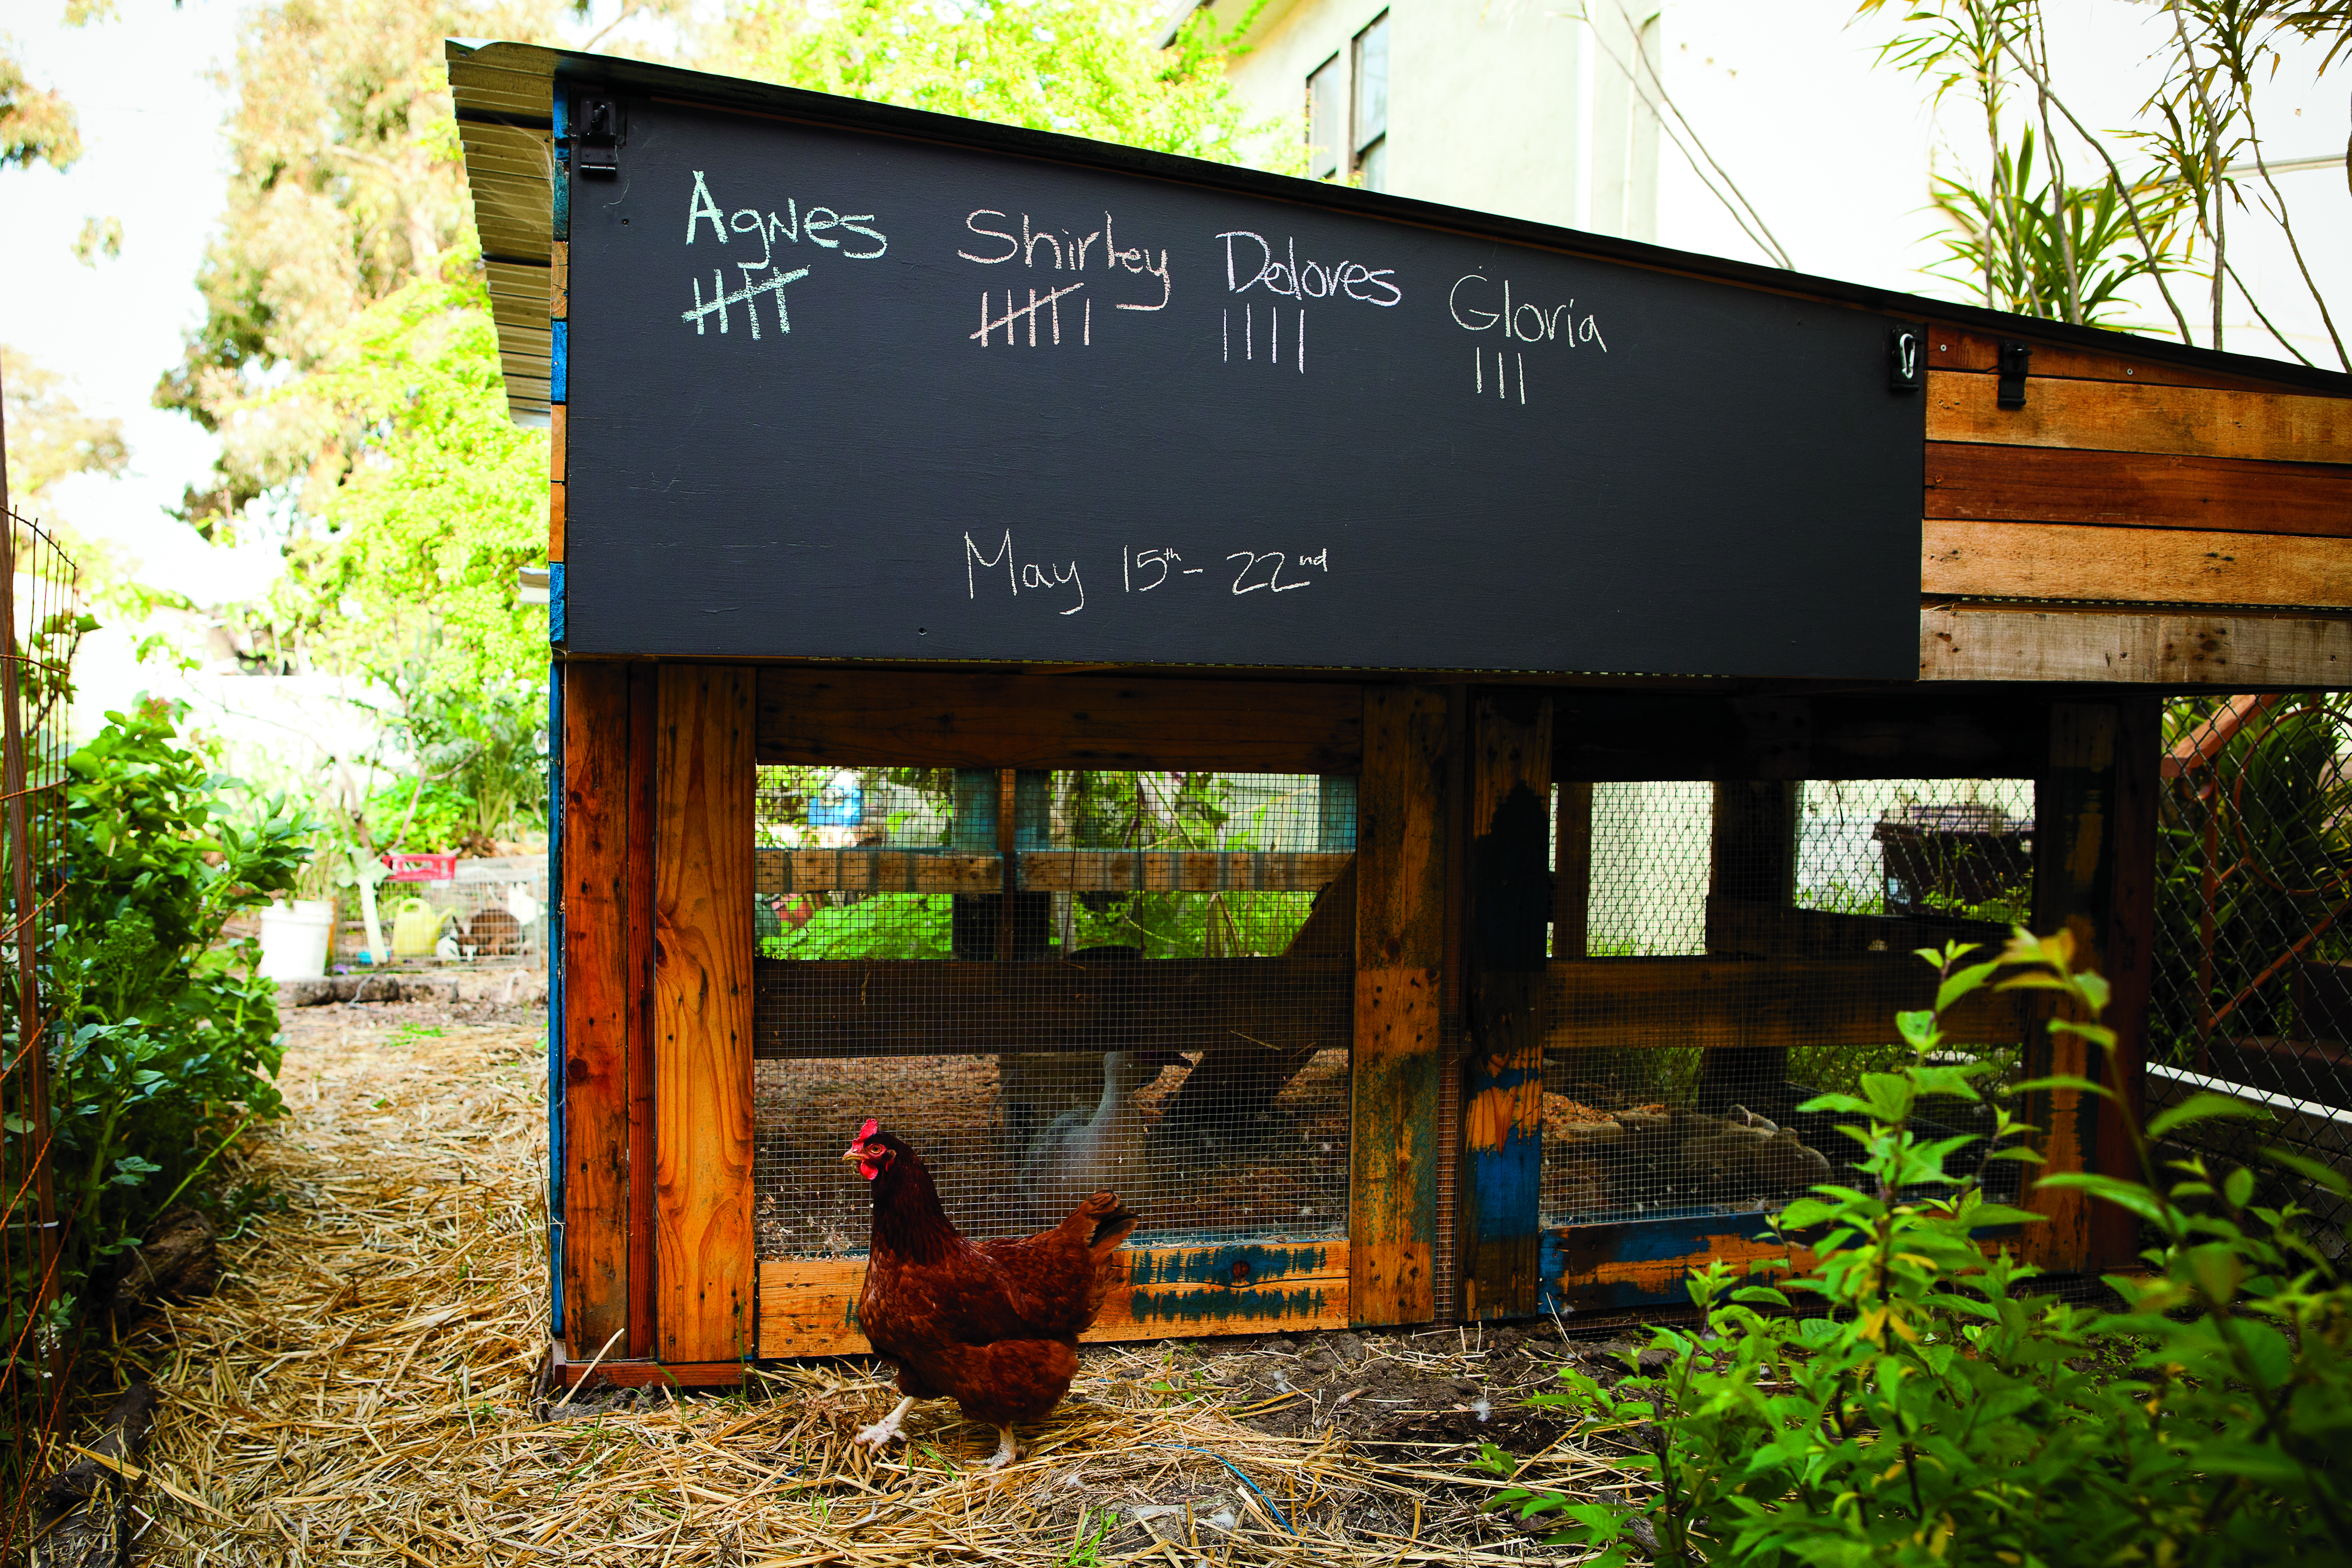 Agnes Shirley Dolores Gloria
~~||||~~ ~~||||~~ | |||| |||
May 15th - 22nd